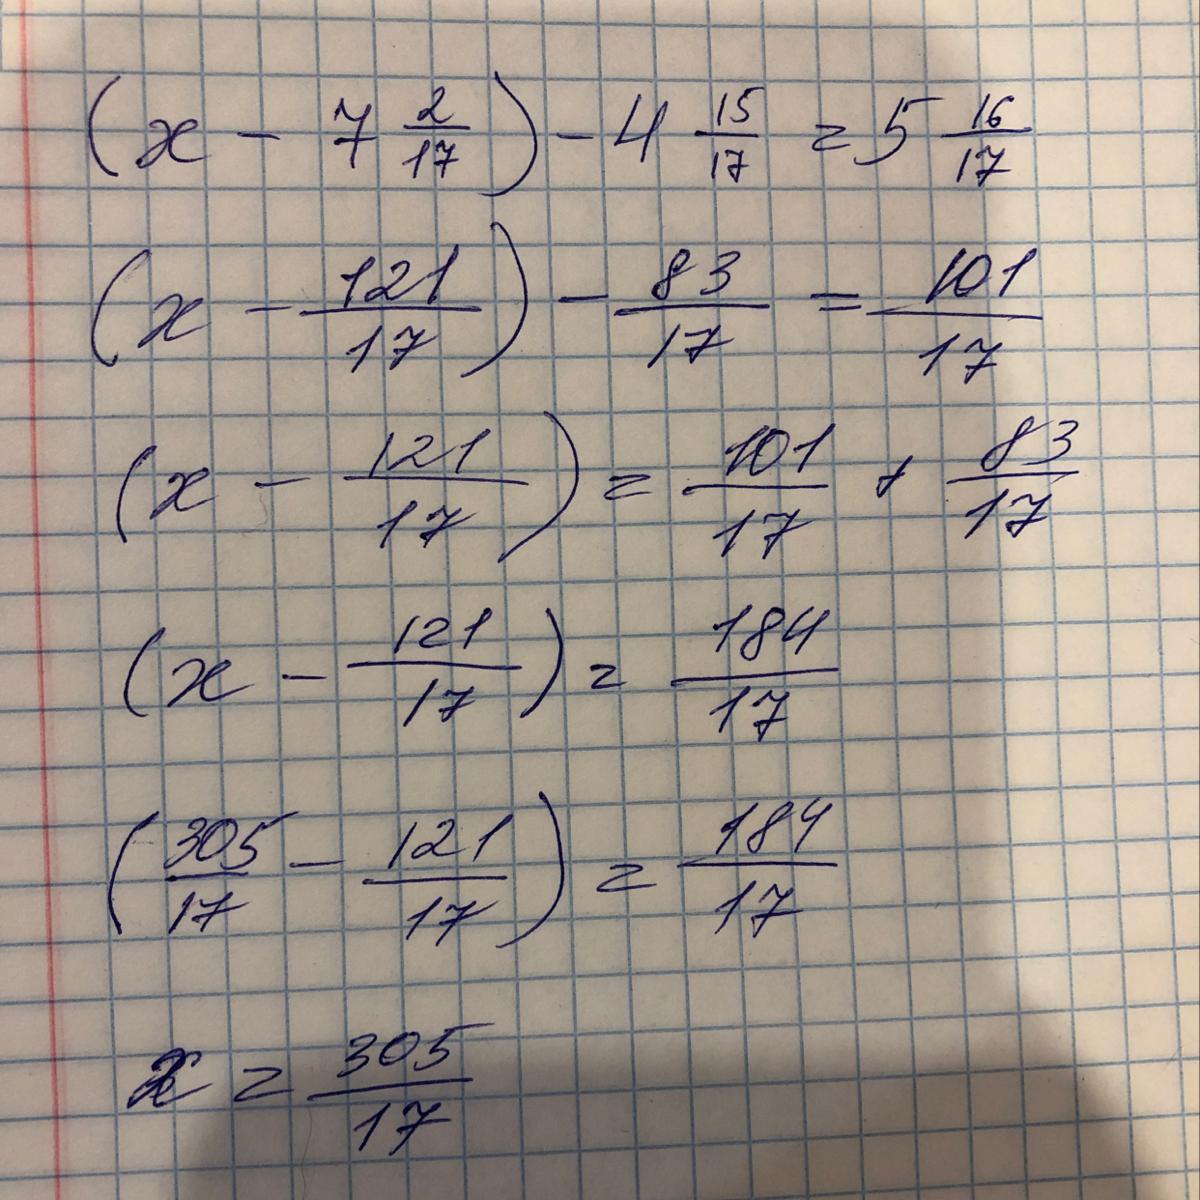 (x - 7 2/17) - 4 15/17 = 5 16/17
(x - 121/17) - 83/17 = 101/17
(x - 121/17) = 101/17 + 83/17
(x - 121/17) = 184/17
(305/17 - 121/17) = 184/17
x = 305/17